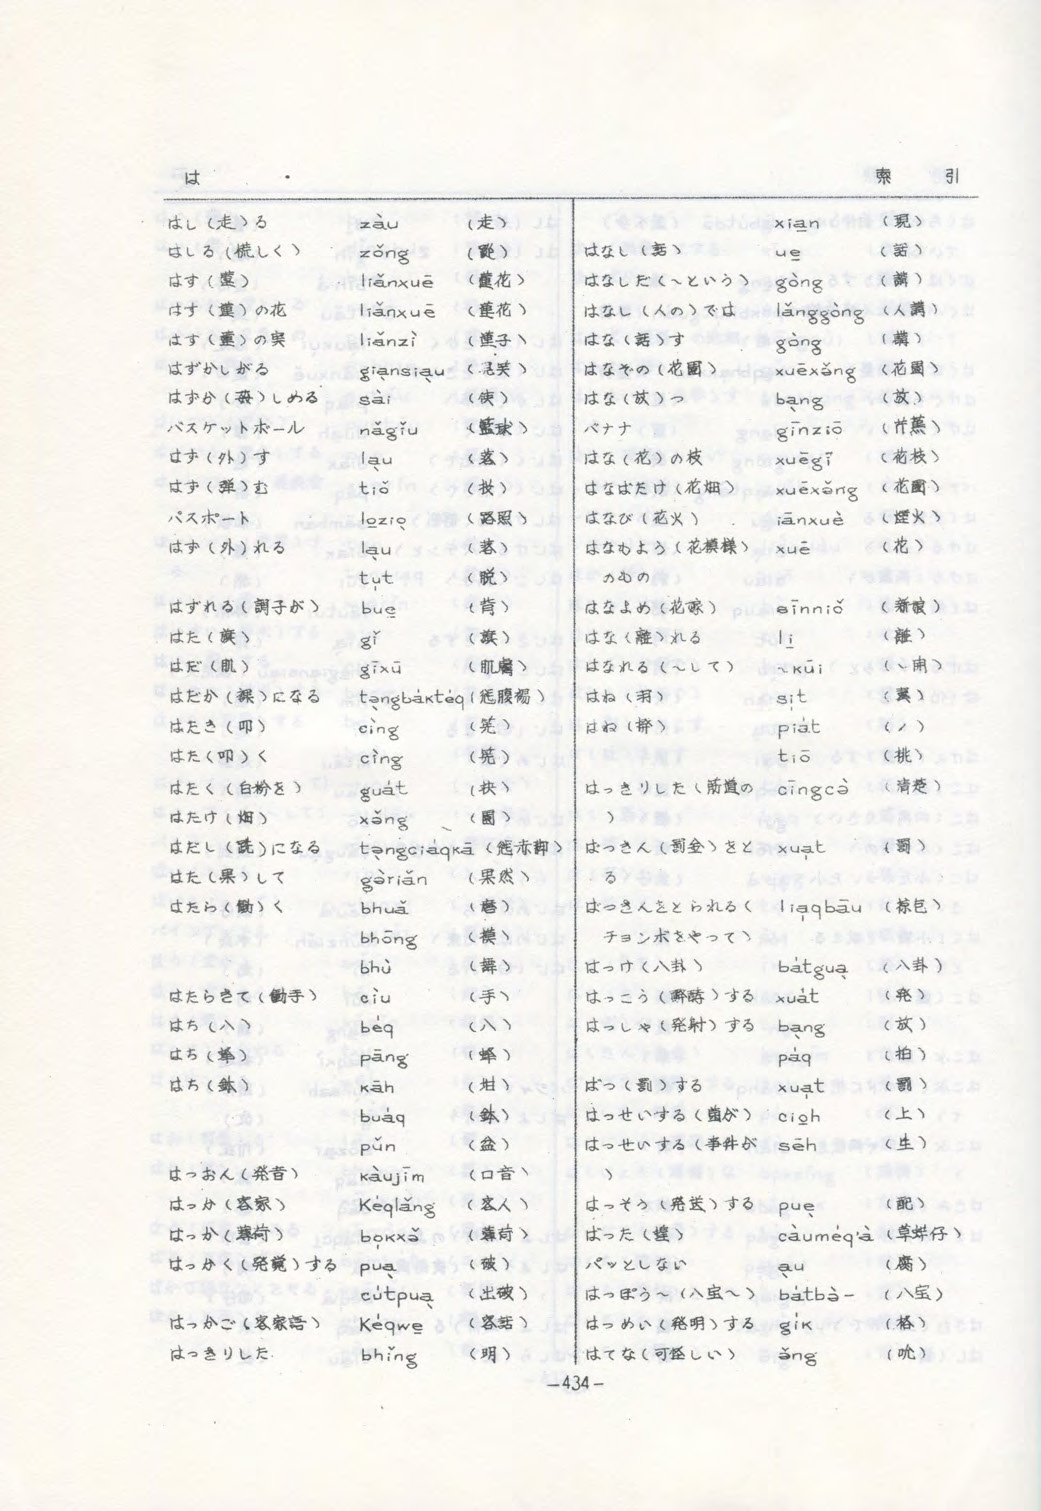 は
索 引
はし(走)る zàu (走)
はしる(慌しく) zǒng (蹤)
はす(蓮) liǎnxuē (蓮花)
はす(蓮)の花 liǎnxuē (蓮花)
はす(蓮)の実 liǎnzì (蓮子)
はずかしがる giạnsiạu
はずか(辱)しめる sài (使)
バスケットボール nǎgǐu (籃球)
はず(外)す lạu (落)
はず(弾)む tiǒ
パスポート lo̱ziọ (路照)
はず(外)れる lạu (落)
tụt (脱)
はずれる(調子が) bue̱ (背)
はた(旗) gǐ (旗)
はだ(肌) gīxū (肌膚)
はだか(裸)になる tạngbáktéq
はたき(叩) cìng (筅)
はた(叩)く cìng (筅)
はたく(白粉を) guát (抉)
はたけ(畑) xǎng (園)
はだし(跣)になる tạngciáqkā
はた(果)して gòriǎn (果然)
はたら(働)く bhuǎ (磨)
bhōng (摸)
bhù (舞)
はたらきて(働手) cìu (手)
はち(八) béq (八)
はち(蜂) pāng (蜂)
はち(鉢) kāh (坩)
buáq (鉢)
pǔn (盆)
はつおん(発音) kàujīm (口音)
はっか(客家) Kéqlǎng (客人)
はっか(薄荷) bọkxǎ (薄荷)
はっかく(発覚)する puạ (破)
cútpuạ (出破)
はっかご(客家語) Kéqwe̱ (客話)
はっきりした bhǐng (明)
xia̱n (現)
はなし(話) ue̱ (話)
はなした(～という) gòng (講)
はなし(人の)では lǎnggòng (人講)
はな(話)す gòng (講)
はなその(花園) xuēxǎng (花園)
はな(放)つ bạng (放)
バナナ gīnziō
はな(花)の枝 xuēgī (花枝)
はなばたけ(花畑) xuēxǎng (花園)
はなび(花火) iānxuè (煙火)
はなもよう(花模様) xuē (花)
のもの
はなよめ(花嫁) sīnniǒ (新娘)
はな(離)れる li̱ (離)
はなれる(～して) ～kūi (～開)
はね(羽) sịt (翼)
はね(撥) piát (ノ)
tiō (挑)
はっきりした(筋道の cīngcò (清楚)
)
はっきん(罰金)をと xuạt (罰)
る
はっきんをとられる( liạqbāu (掠包)
チョンボをやって)
はっけ(八卦) bátguạ (八卦)
はっこう(醱酵)する xuát (発)
はっしゃ(発射)する bạng (放)
páq (拍)
ばつ(罰)する xuạt (罰)
はっせいする(歯が) cio̱h (上)
はっせいする(事件が sēh (生)
)
はっそう(発送)する puẹ (配)
ばった(蝗) càuméq'à (草蜢仔)
パッとしない ạu (腐)
はっぽう～(八宝～) bátbò- (八宝)
はつめい(発明)する gík (格)
はてな(可怪しい) ǎng (吭)
－434－